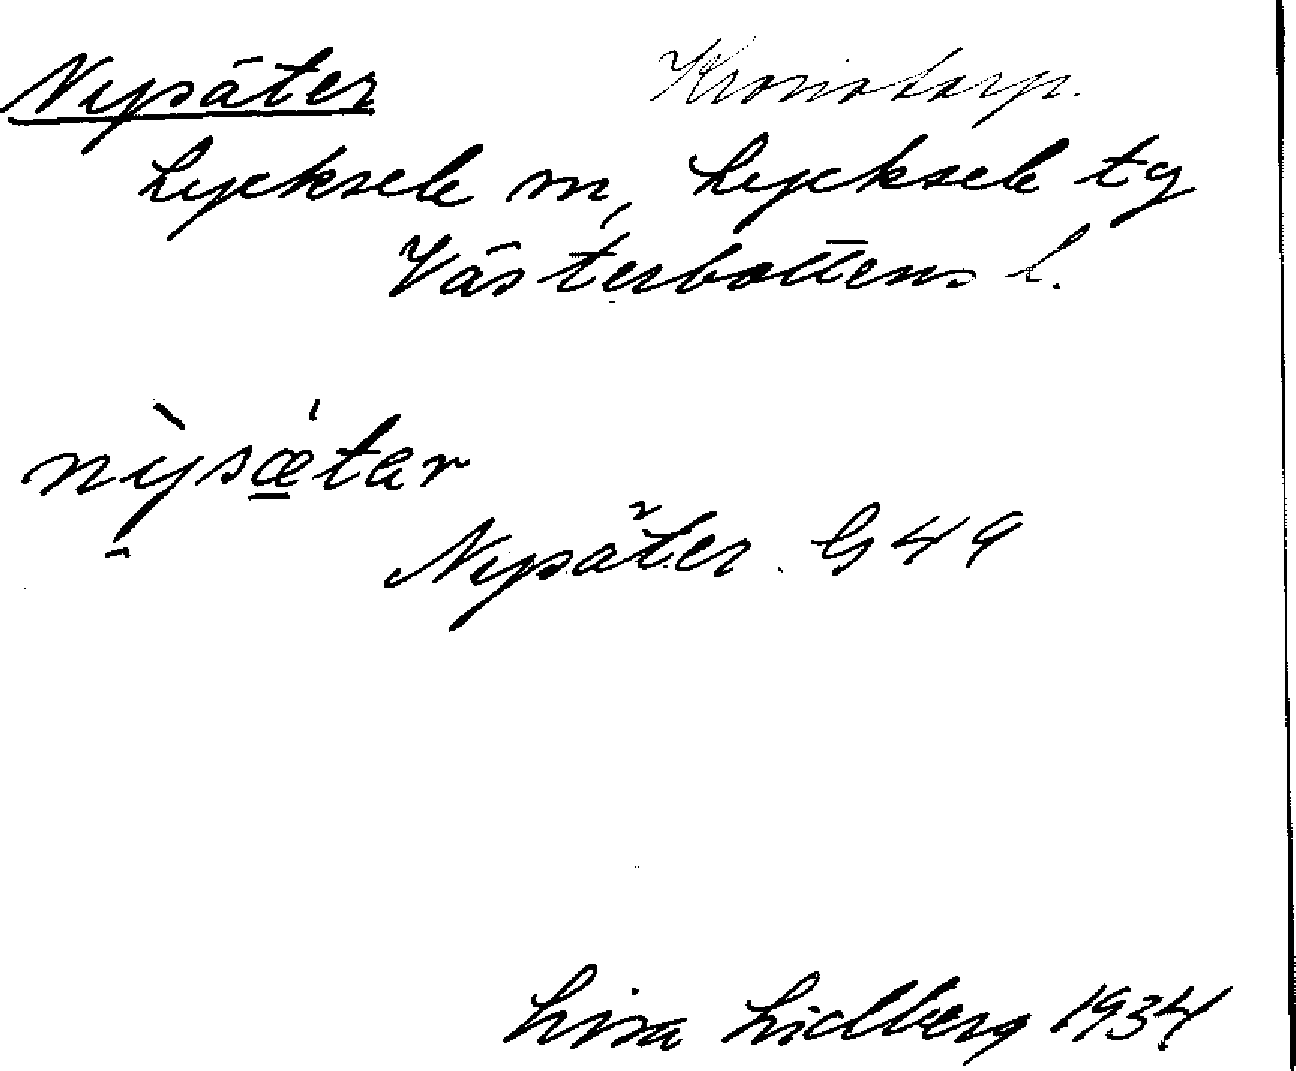 Nysäter Kronotorp.
Lycksele m, Lycksele tg
Västerbottens l.
nỳsǽtar
Nysäter. G49
Lisa Lidberg 1934